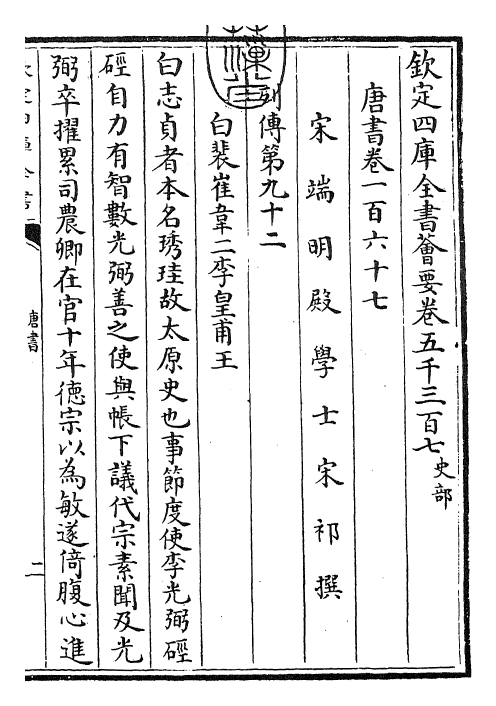 欽定四庫全書薈要卷五千三百七 史部
唐書卷一百六十七
宋端明殿學士宋祁撰
列傳第九十二
白裴崔韋二李皇甫王
白志貞者本名琇珪故太原史也事節度使李光弼硜
硜自力有智數光弼善之使與帳下議代宗素聞及光
弼卒擢累司農卿在官十年德宗以為敏遂倚腹心進
唐書